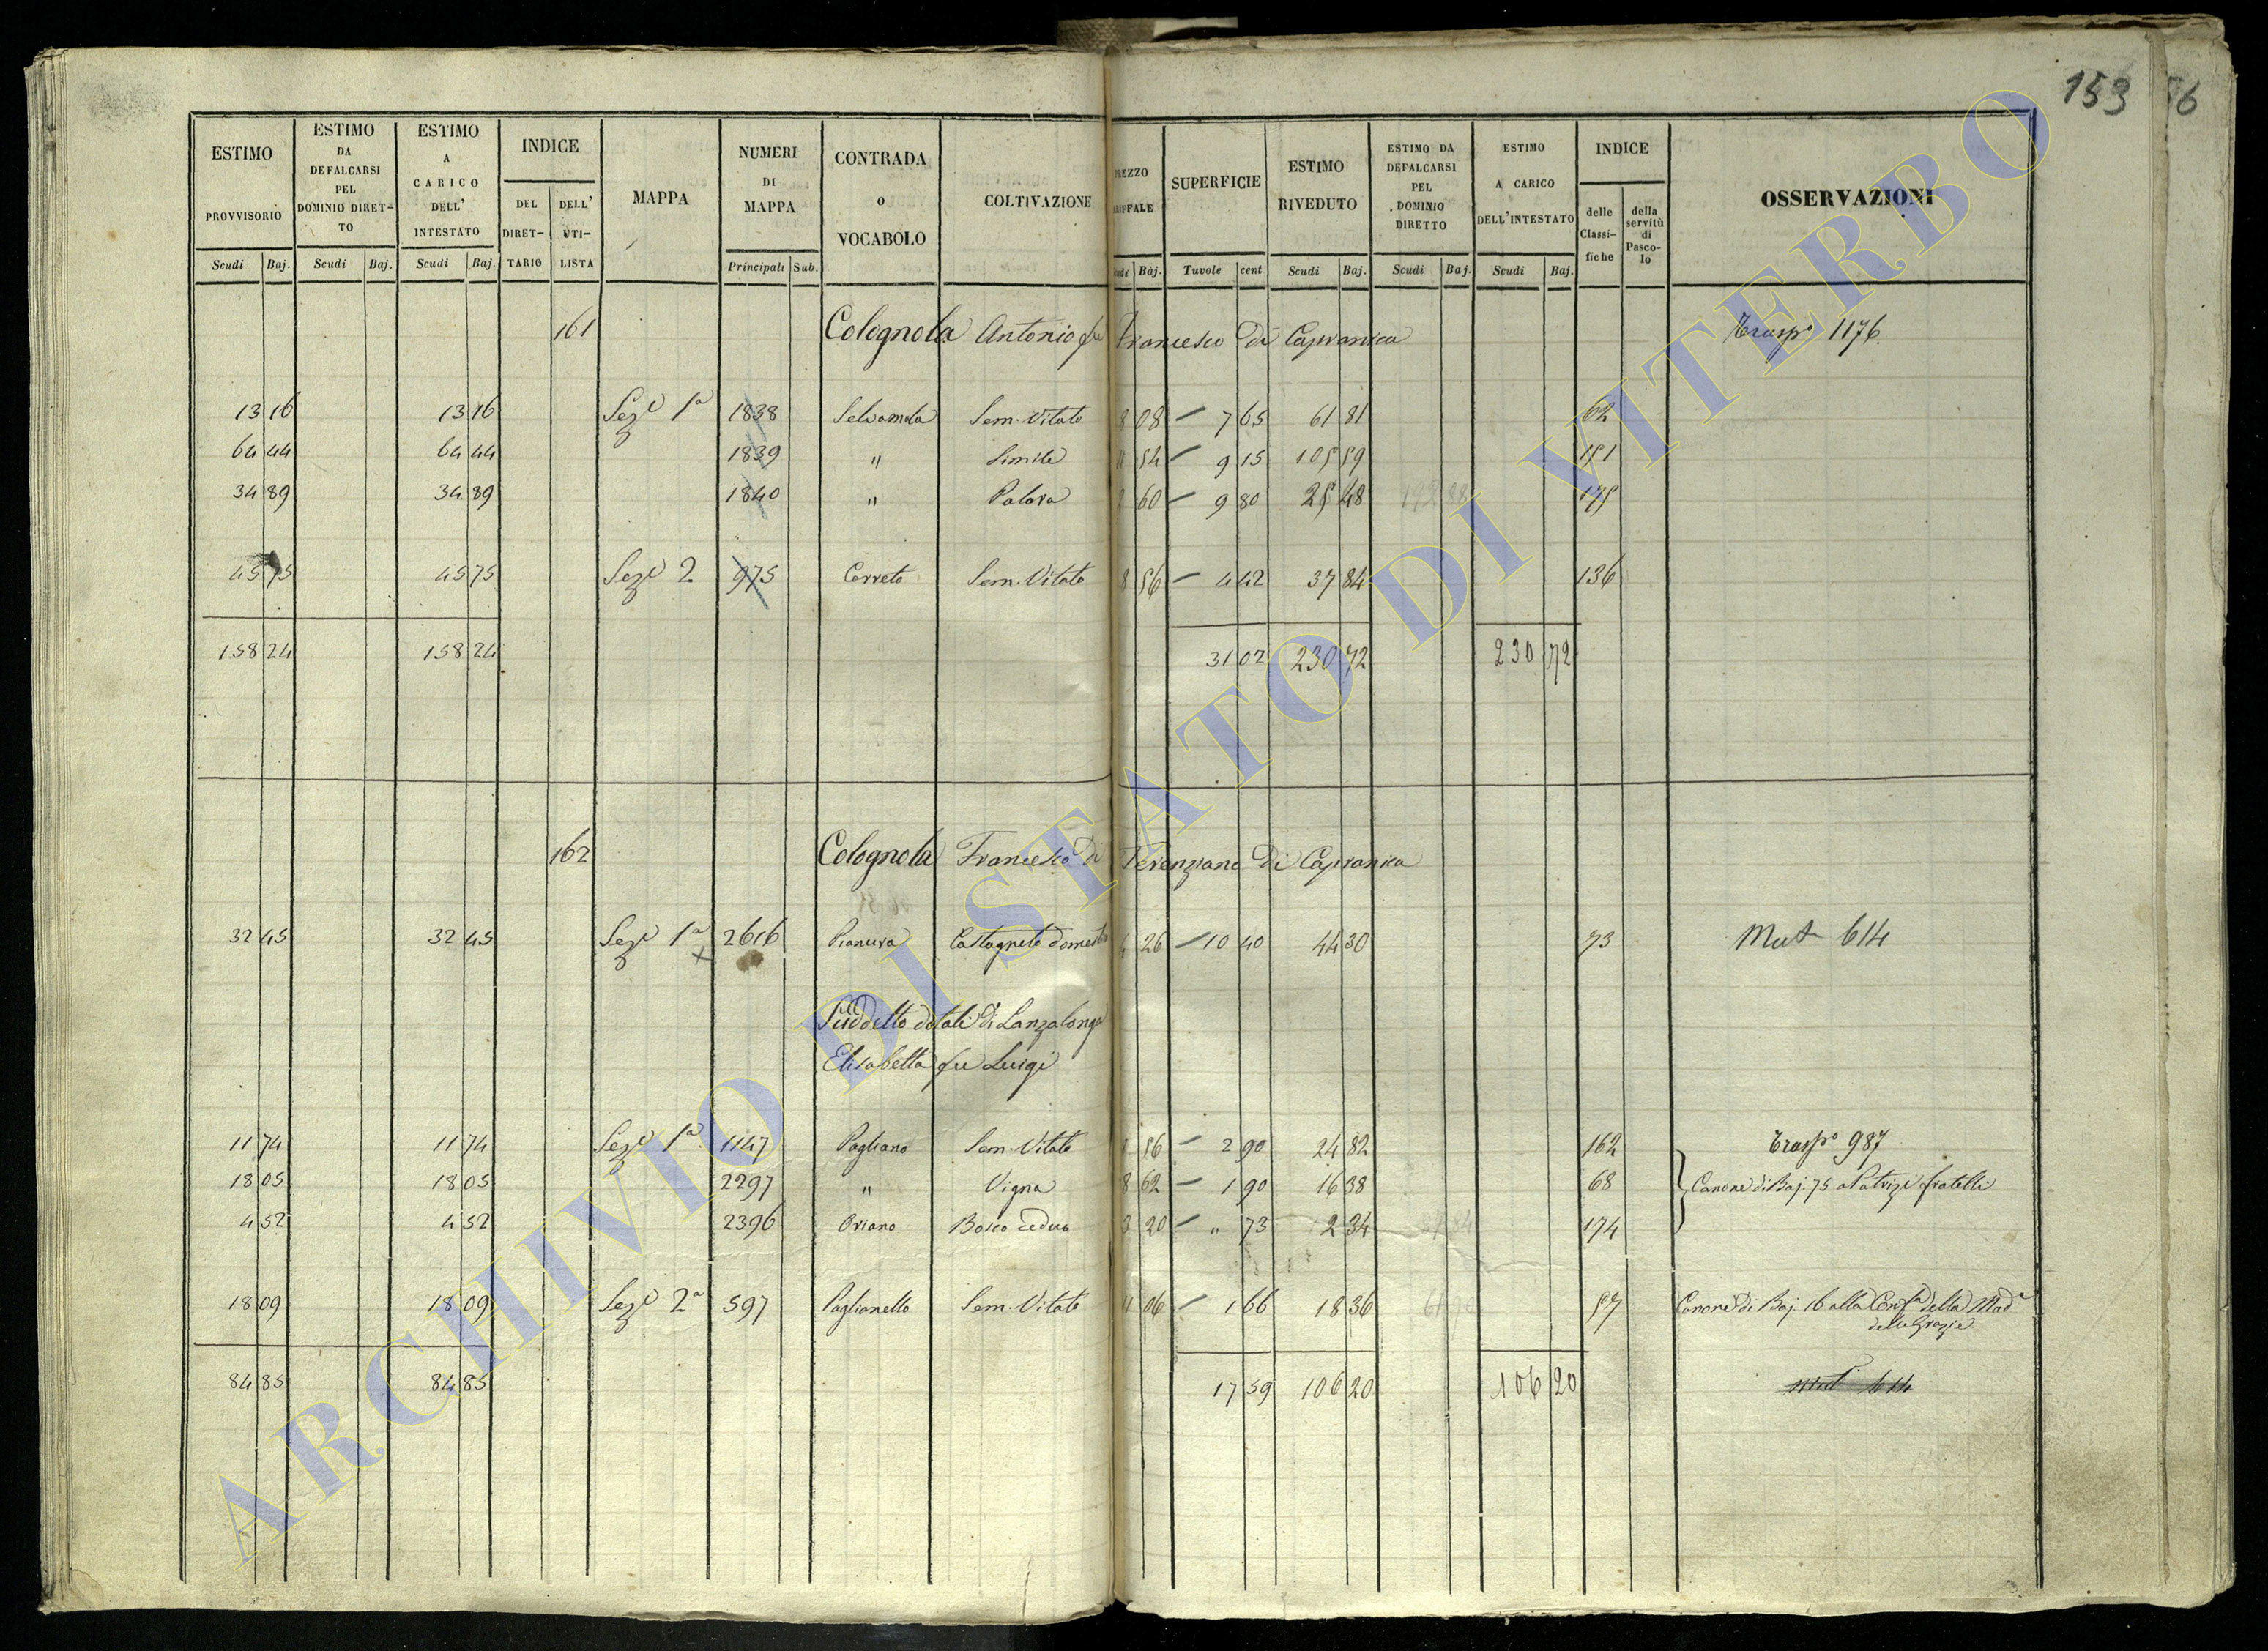 153 56
ESTIMO PROVVISORIO Scudi Baj.
ESTIMO DA DEFALCARSI PEL DOMINIO DIRET-TO Scudi Baj.
ESTIMO A CARICO DELL' INTESTATO Scudi Baj.
INDICE DEL DIRET-TARIO DELL' UTI-LISTA
MAPPA
NUMERI DI MAPPA Principali Sub.
CONTRADA O VOCABOLO
COLTIVAZIONE
REZZO RIFFALE udi Baj.
SUPERFICIE Tuvole cent
ESTIMO RIVEDUTO Scudi Baj.
ESTIMO DA DEFALCARSI PEL DOMINIO DIRETTO Scudi Baj.
ESTIMO A CARICO DELL'INTESTATO Scudi Baj.
INDICE delle Classi-fiche della servitù di Pasco-lo
OSSERVAZIONI
161 Colognola Antonio fu Francesco Di Capranica Trasp.o 1176
13 16 13 16 Sez.e 1a 1838 Selvamola Sem. Vitato 8 08 – 7 65 61 81 62
64 44 64 44 1839 " Simile 11 54 – 9 15 105 59 151
34 89 34 89 1840 " Palara 2 60 – 9 80 25 48 175
45 75 45 75 Sez.e 2 975 Cerreto Sem. Vitato 8 56 – 4 42 37 84 136
158 24 158 24 31 02 230 72 230 72
162 Colognola Francesco Di Terenziano Di Capranica
32 45 32 45 Sez.e 1a x 2616 Pianciva Castagneto domestico 4 26 – 10 40 44 30 73 Mut 614
Suddetto dotali di Lanzalonga
Elisabetta fu Luigi
11 74 11 74 Sez.e 1a 1147 Pagliano Sem. Vitato 8 56 – 2 90 24 82 162 Trasp.o 987
18 05 18 05 2297 " Vigna 8 62 – 1 90 16 38 68 Canone di Baj. 75 a Patrizi fratelli
4 52 4 52 2396 Oriano Bosco ceduo 3 20 – " 73 2 34 174
18 09 18 09 Sez.e 2a 597 Paglianello Sem. Vitato 11 06 – 1 66 18 36 57 Canone di Baj. 16 alla Conf.a della Mad.a
delle Grazie
84 85 84 85 17 59 106 20 106 20 Mut 614
ARCHIVIO DI STATO DI VITERBO